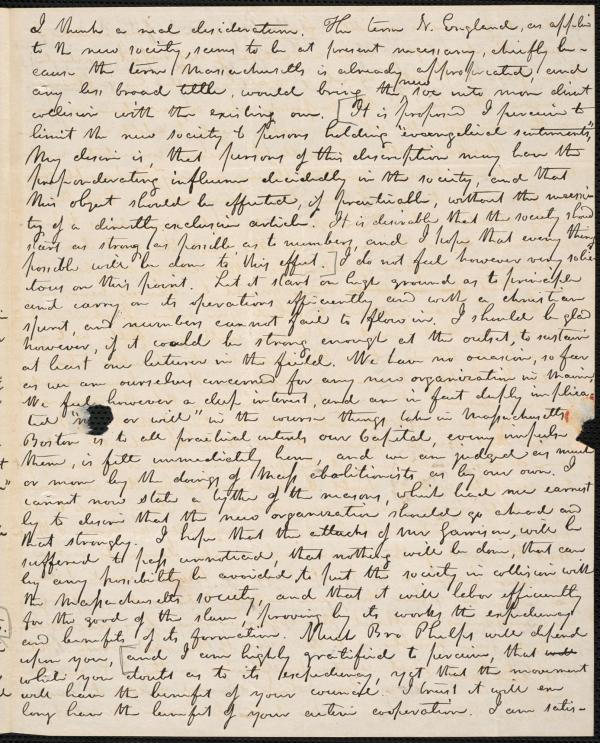 I think a real desideratum. The term N. England, as applied
to the new society, seems to be at present necessary, chiefly be-
cause the term Massachusetts is already appropriated, and
any less broad title, would bring the new soc into more direct
collision with the existing one. [It is proposed I perceive to
limit the new society to persons holding "evangelical sentiments",
My desire is, that persons of this description may have the
preponderating influence decidedly in the society, and that
this object should be effected, if practicable, without the necessi-
ty of a directly exclusive article. It is desirable that the society should
start as strong as possible as to numbers, and I hope that every thing
possible will be done to this effect.] I do not feel however very solici-
tous on this point. Let it start on high ground as to principle
and carry on its operations efficiently and with a christian
spirit, and numbers cannot fail to flow in. I should be glad
however, if it could be strong enough at the outset, to sustain
at least one lecturer in the field. We have no occasion, so far
as we are ourselves concerned for any new organization in Maine,
We feel however a deep interest, and are in fact deeply implica-
ted " or will" in the course things take in Massachusetts
Boston is to all practical intents our Capital, every impulse
there, is felt immediately here, and we are judged as much
or more by the doings of Mass abolitionists as by our own. I
cannot now state a tythe of the reasons, which lead me earnest
ly to desire that the new organization should go ahead and
that strongly. I hope that the attacks of Mr Garrison, will be
suffered to pass unnoticed, that nothing will be done, that can
by any possibility be avoided to put the society in collision with
the Massachusetts society, and that it will labor efficiently
for the good of the slave, proving by its works the expediency
and benefits of its formation. Much Bro Phelps will depend
upon you, [and I am highly gratified to perceive, that
while you doubt as to its expediency, yet that the movement
will have the benefit of your council. I trust it will ere
long have the benefit of your entire cooperation. I am satis-